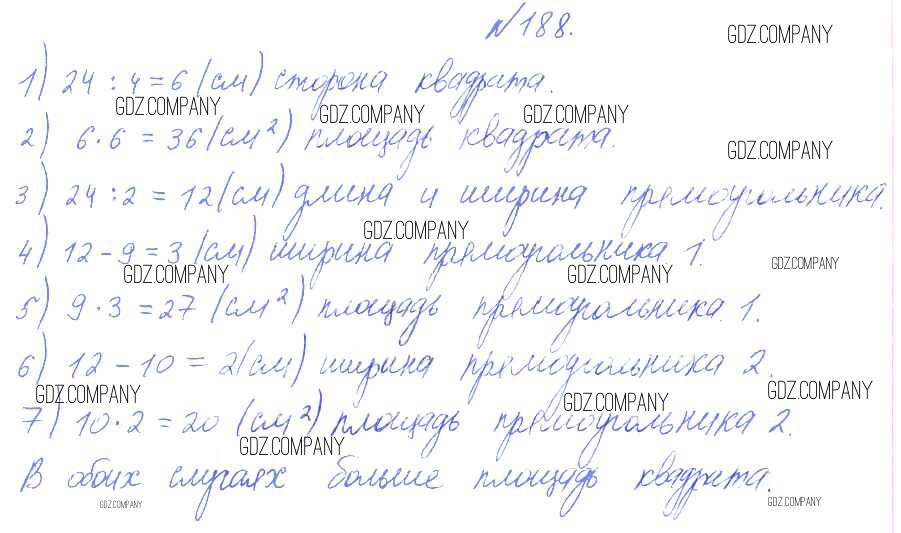 №188.
GDZ.COMPANY
1) 24 : 4 = 6 (см) сторона квадрата.
GDZ.COMPANY GDZ.COMPANY GDZ.COMPANY
2) 6 · 6 = 36 (см²) площадь квадрата.
GDZ.COMPANY
3) 24 : 2 = 12 (см) длина и ширина прямоугольника.
GDZ.COMPANY
4) 12 - 9 = 3 (см) ширина прямоугольника 1.
GDZ.COMPANY GDZ.COMPANY GDZ.COMPANY
5) 9 · 3 = 27 (см²) площадь прямоугольника 1.
6) 12 - 10 = 2 (см) ширина прямоугольника 2.
GDZ.COMPANY GDZ.COMPANY GDZ.COMPANY
7) 10 · 2 = 20 (см²) площадь прямоугольника 2.
GDZ.COMPANY
В обоих случаях больше площадь квадрата.
GDZ.COMPANY GDZ.COMPANY